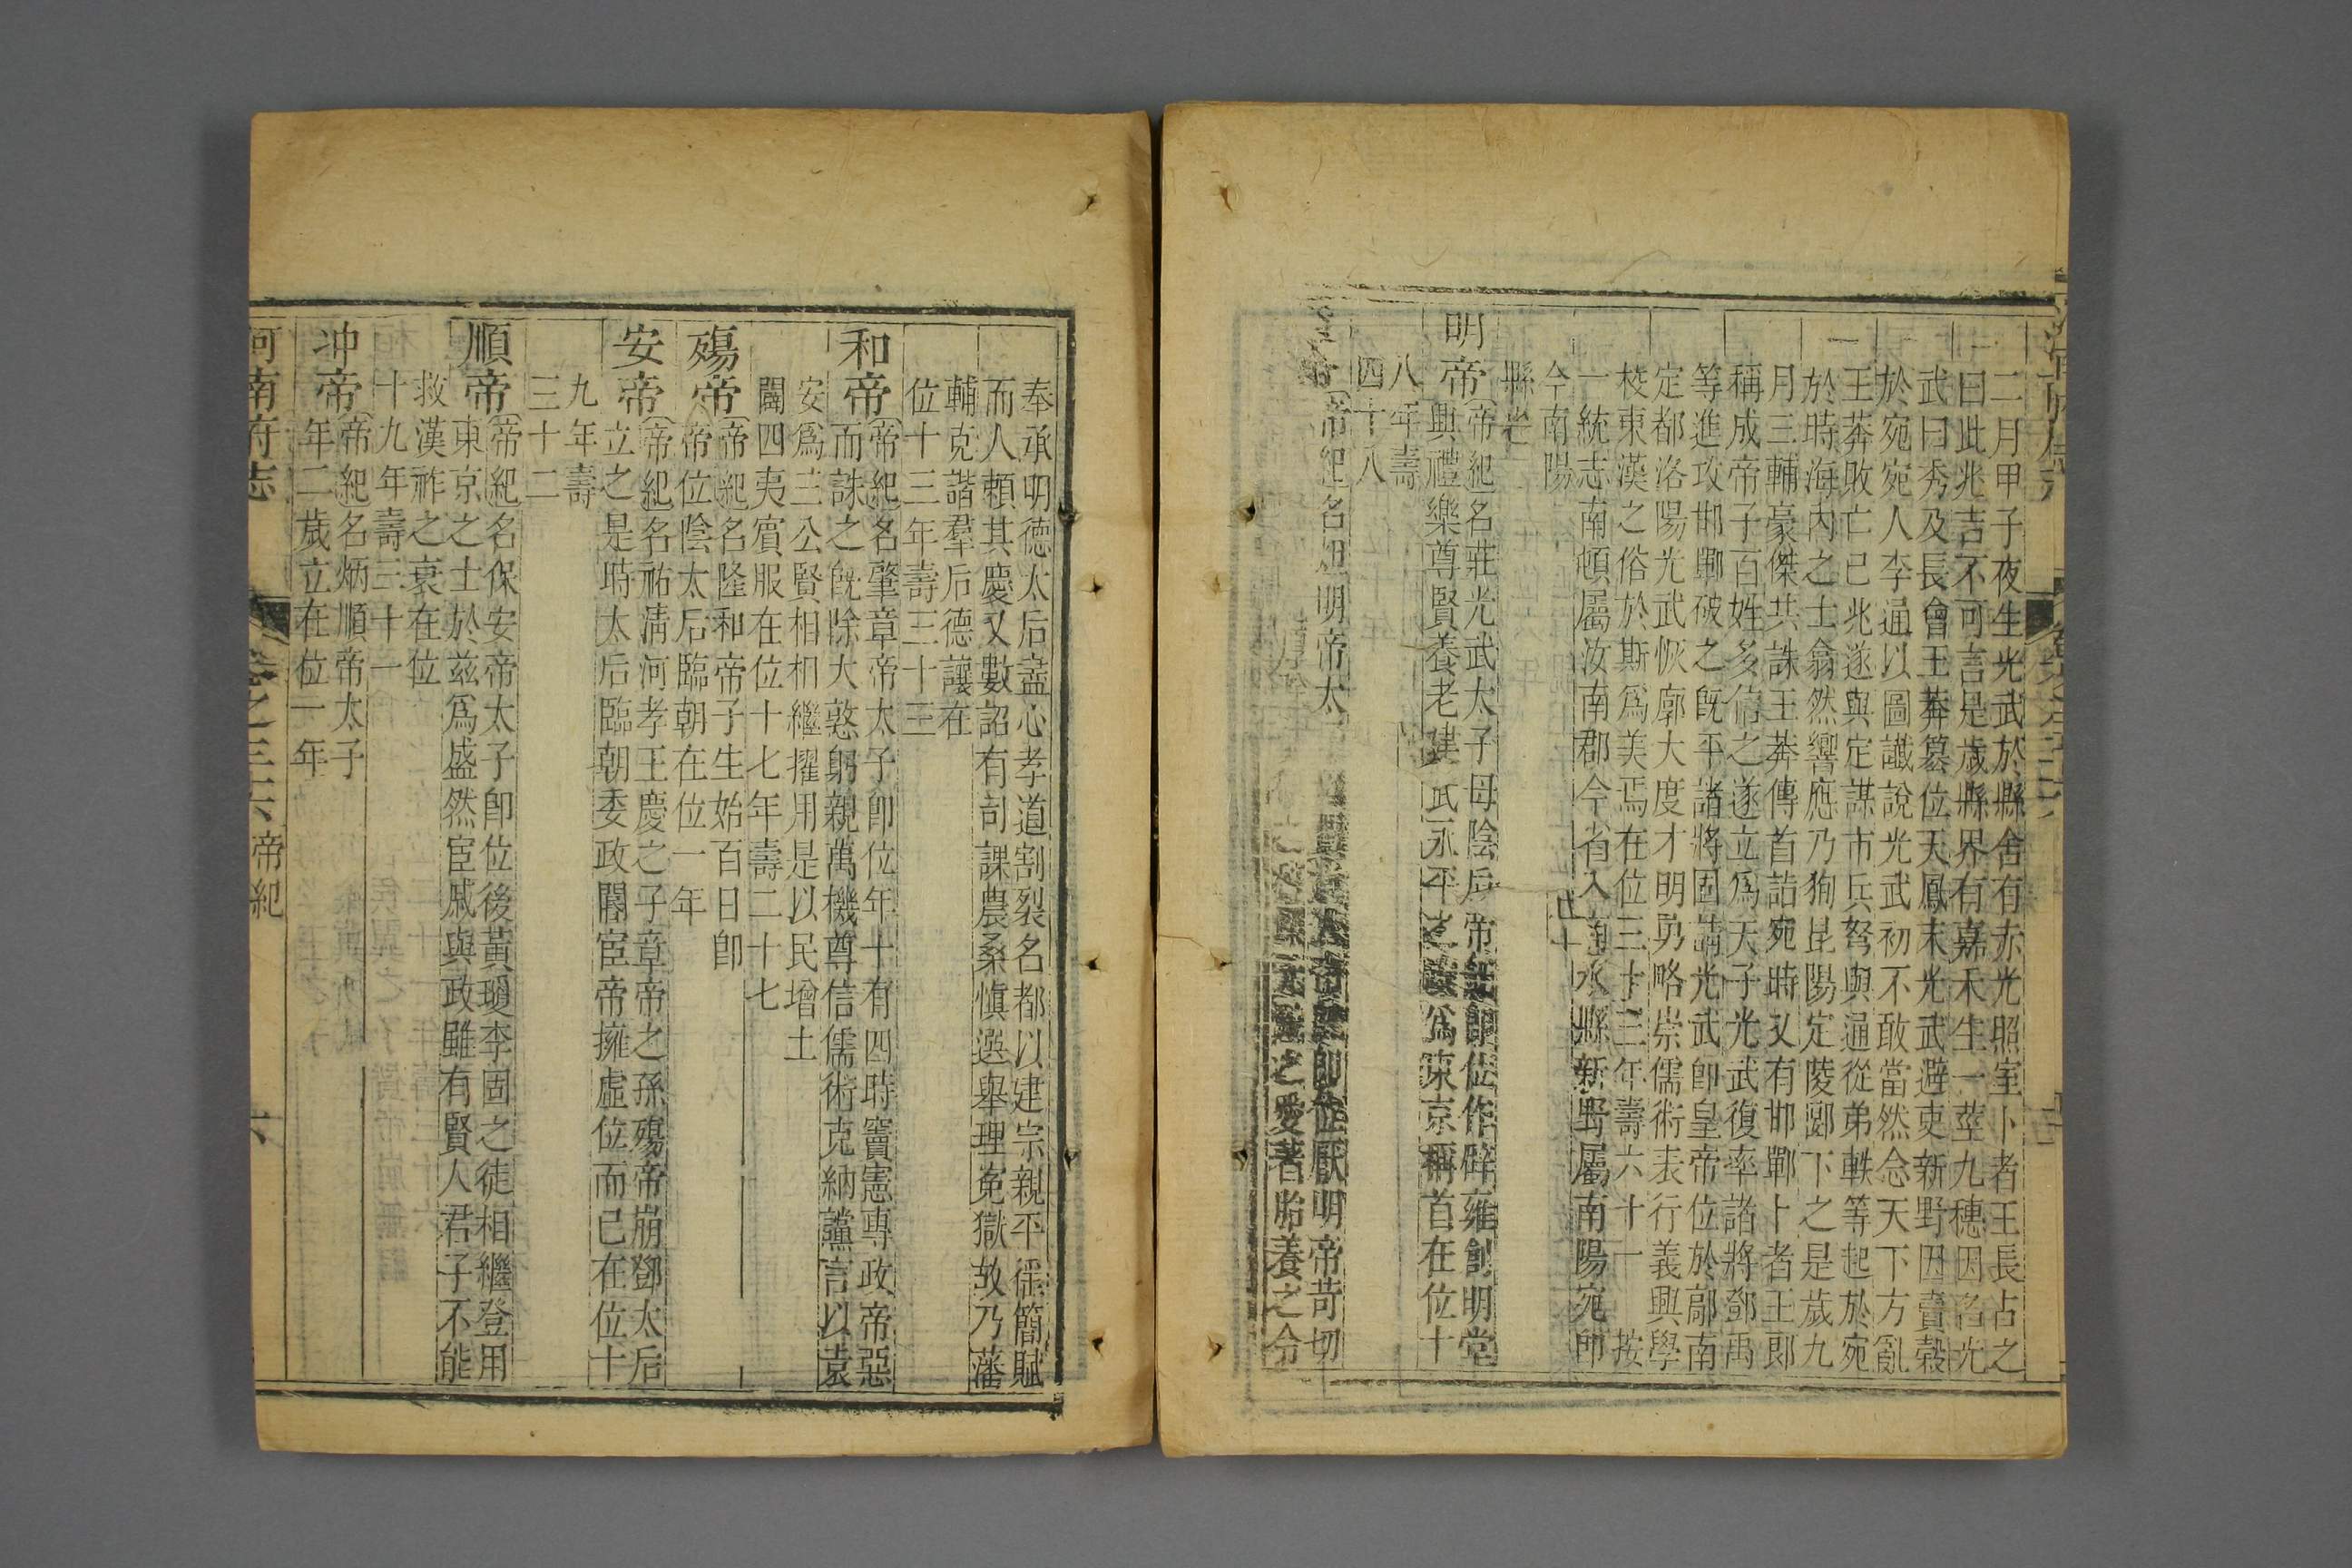 二月甲子夜生光武於縣舍有赤光照室卜者王長占之
曰此兆吉不可言是歲縣界有嘉禾生一莖九穗因名光
武曰秀及長會王莽篡位天鳳末光武避吏新野因賣穀
於宛宛人李通以圖讖說光武初不敢當然念天下方亂
王莽敗亡已兆遂與定謀市兵弩與通從弟軼等起於宛
於時海內之士翕然響應乃狥昆陽定陵郾下之是歲九
月三輔豪傑共誅王莽傳首詣宛時又有邯鄲卜者王郎
稱成帝子百姓多信之遂立爲天子光武復率諸將鄧禹
等進攻邯鄲破之旣平諸將固請光武卽皇帝位於鄗南
定都洛陽光武恢廓大度才明勇略崇儒術表行義興學
校東漢之俗於斯爲美焉在位三十三年壽六十一 按
一統志南頓屬汝南郡今省入商水縣新野屬南陽宛卽
今南陽
縣
明帝 帝紀名莊光武太子母陰后帝旣卽位作辟雍創明堂
興禮樂尊賢養老建武永平之政爲東京稱首在位十
八年壽
四十八
帝紀名炟明帝太 卽位厭明帝苛切
元元之愛著胎養之令
奉承明德太后盡心孝道割裂名都以建宗親平徭簡賦
而人賴其慶又數詔有司課農桑愼選舉理寃獄故乃藩
輔克諧羣后德讓在
位十三年壽三十三
和帝 帝紀名肇章帝太子卽位年十有四時竇憲專政帝惡
而誅之旣除大憝躬親萬機尊信儒術克納讜言以袁
安爲三公賢相相繼擢用是以民增土
闢四夷賓服在位十七年壽二十七
殤帝 帝紀名隆和帝子生始百日卽
帝位陰太后臨朝在位一年
安帝 帝紀名祐淸河孝王慶之子章帝之孫殤帝崩鄧太后
立之是時太后臨朝委政閹宦帝擁虛位而已在位十
九年壽
三十二
順帝 帝紀名保安帝太子卽位後黃瓊李固之徒相繼登用
東京之士於玆爲盛然宦戚與政雖有賢人君子不能
救漢祚之衰在位
十九年壽三十一
冲帝 帝紀名炳順帝太子
年二歲立在位一年
河南府志 卷之三六 帝紀 六